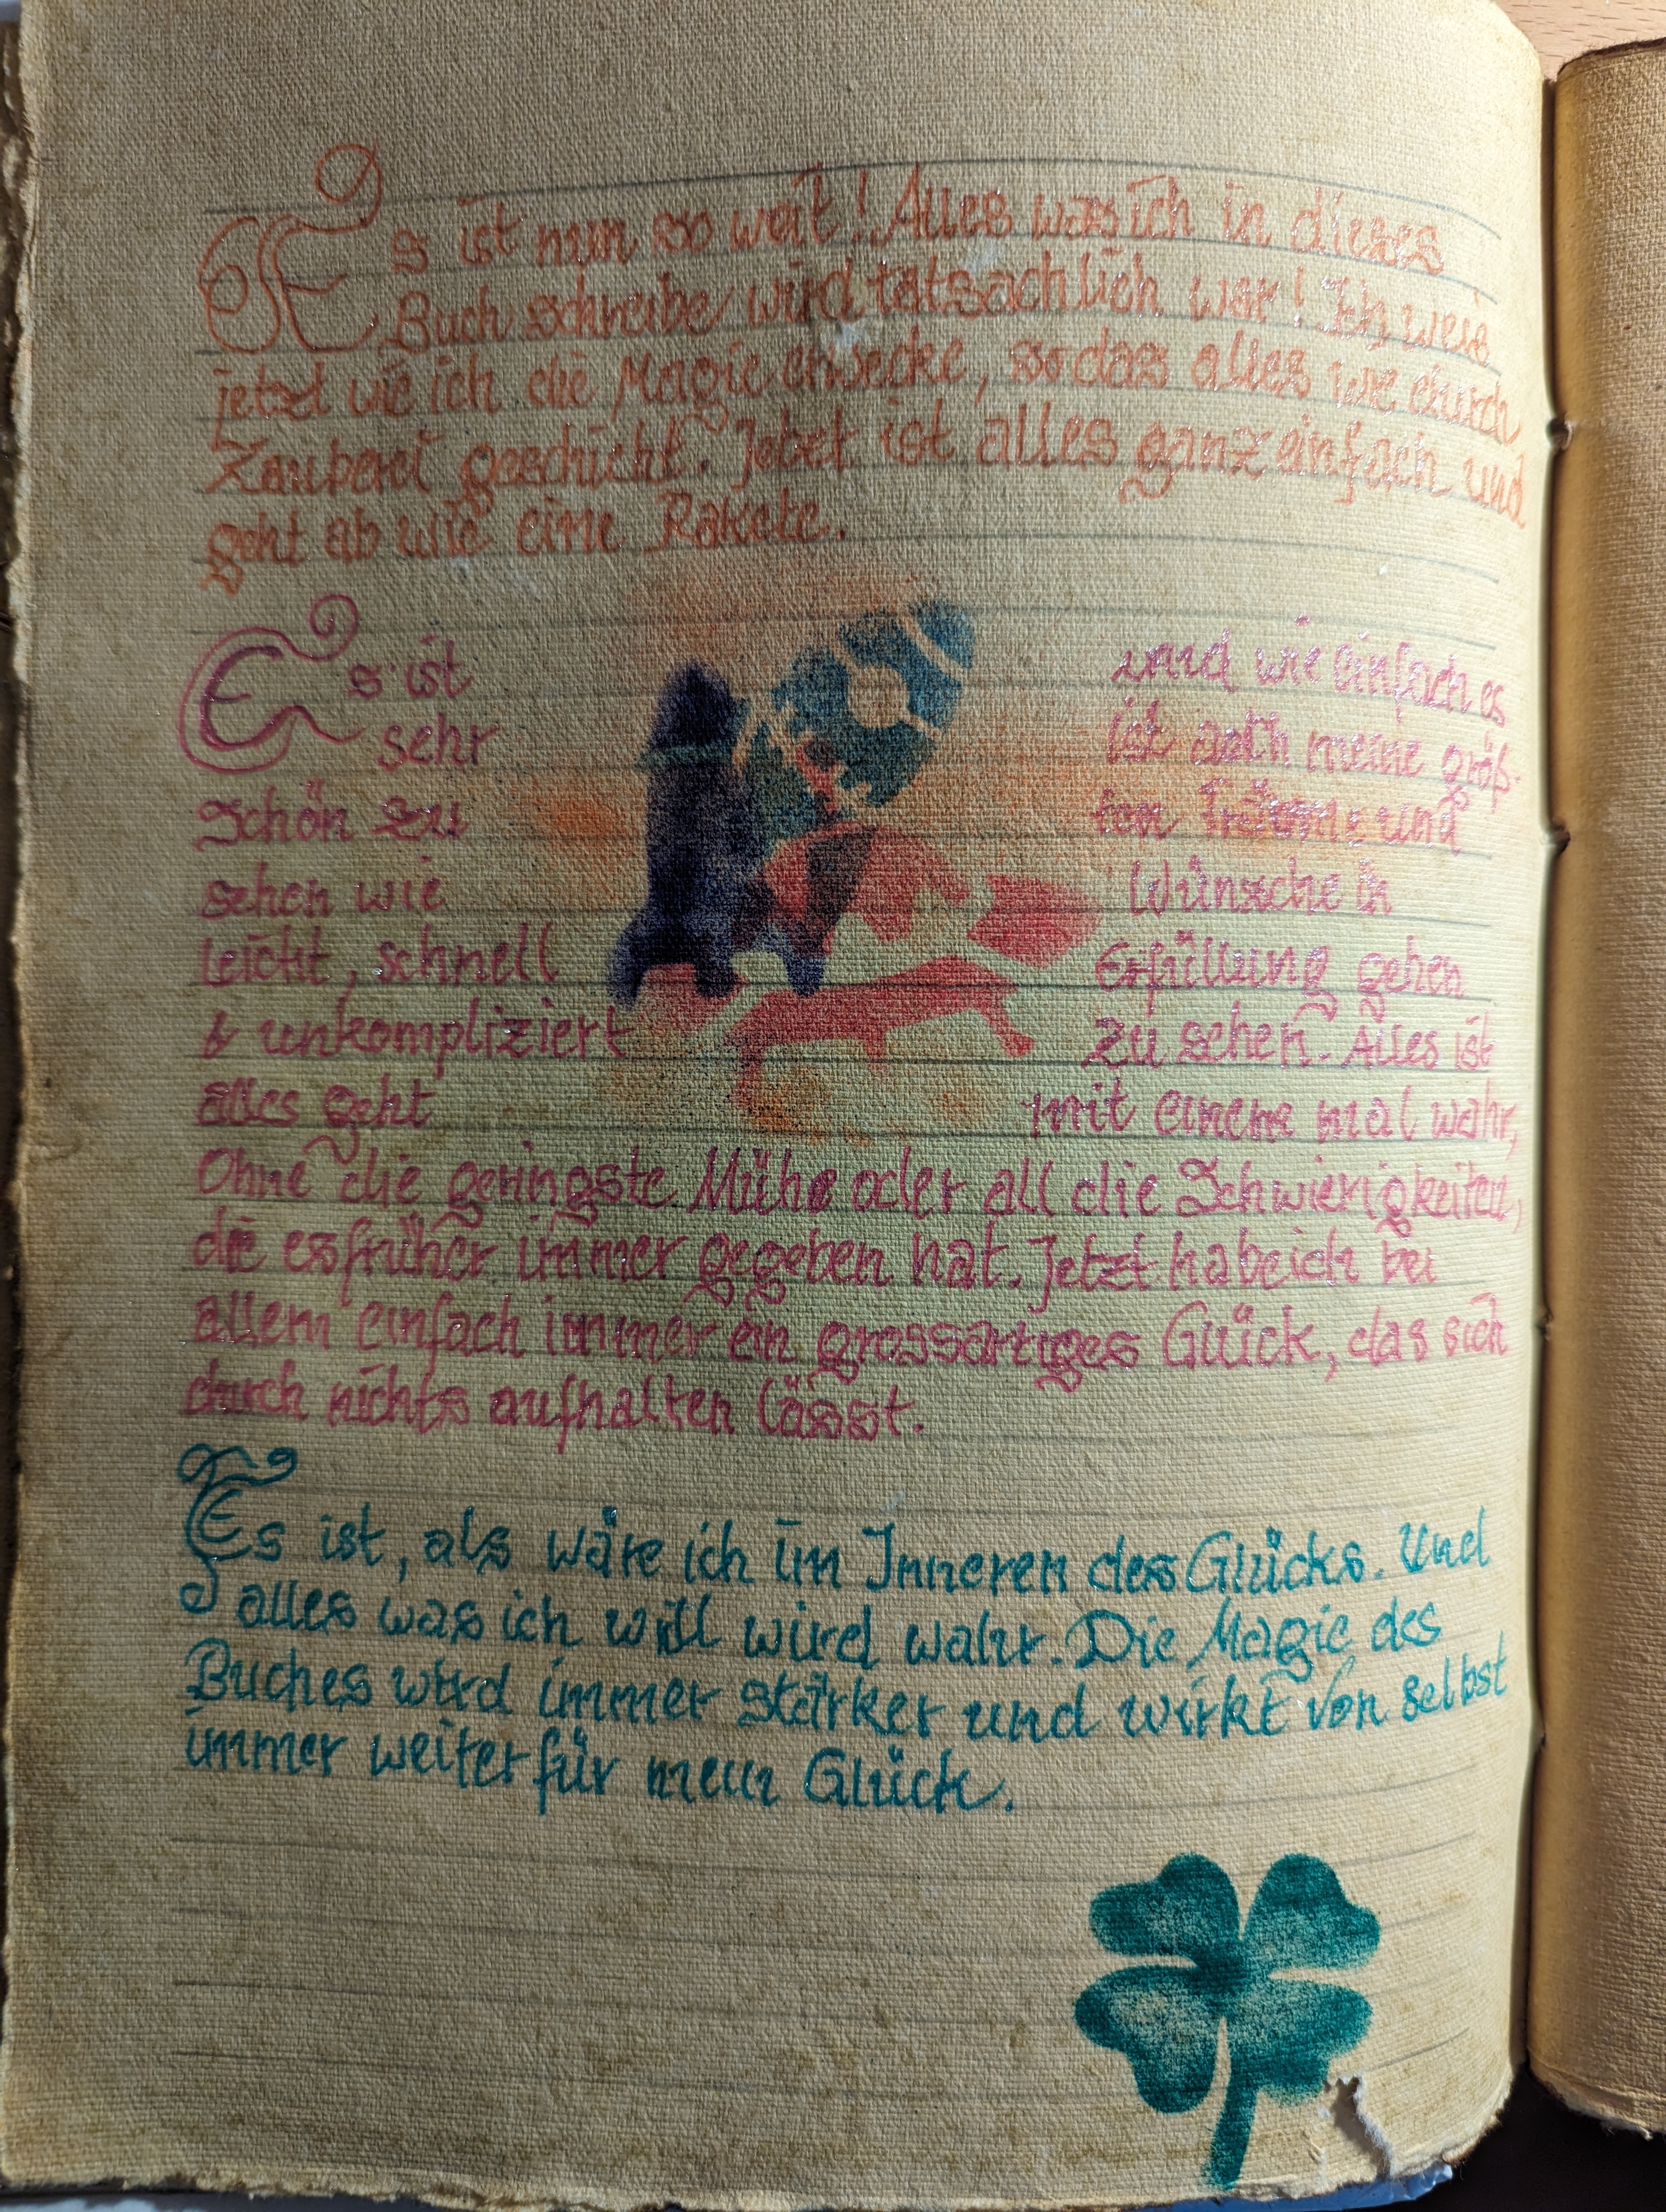 Es ist nun so weit! Alles was ich in dieses
Buch schreibe wird tatsächlich war! Ich weis
jetzt wie ich die Magie erwecke, so das alles wie durch
Zauberei geschieht. Jetzt ist alles ganz einfach und
geht ab wie eine Rakete.
Es ist
sehr
Schön zu
sehen wie
Leicht, schnell
& unkompliziert
alles geht
und wie einfach es
ist auch meine größ-
ten Träume und
Wünsche in
Erfüllung gehen
zu sehen. Alles ist
mit einem mal wahr,
Ohne die geringste Mühe oder all die Schwierigkeiten,
die es früher immer gegeben hat. Jetzt habe ich bei
allem einfach immer ein grossartiges Glück, das sich
durch nichts aufhalten lässt.
Es ist, als wäre ich im Inneren des Glücks. Und
alles was ich will wird wahr. Die Magie des
Buches wird immer stärker und wirkt von selbst
immer weiter für mein Glück.